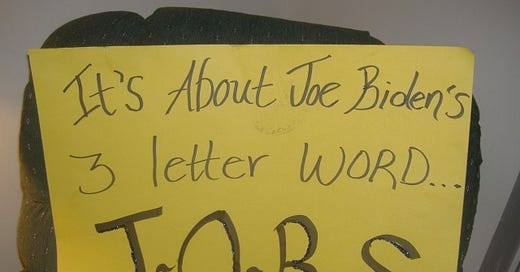 It's About Joe Biden's
3 letter WORD...
J.O.B.S